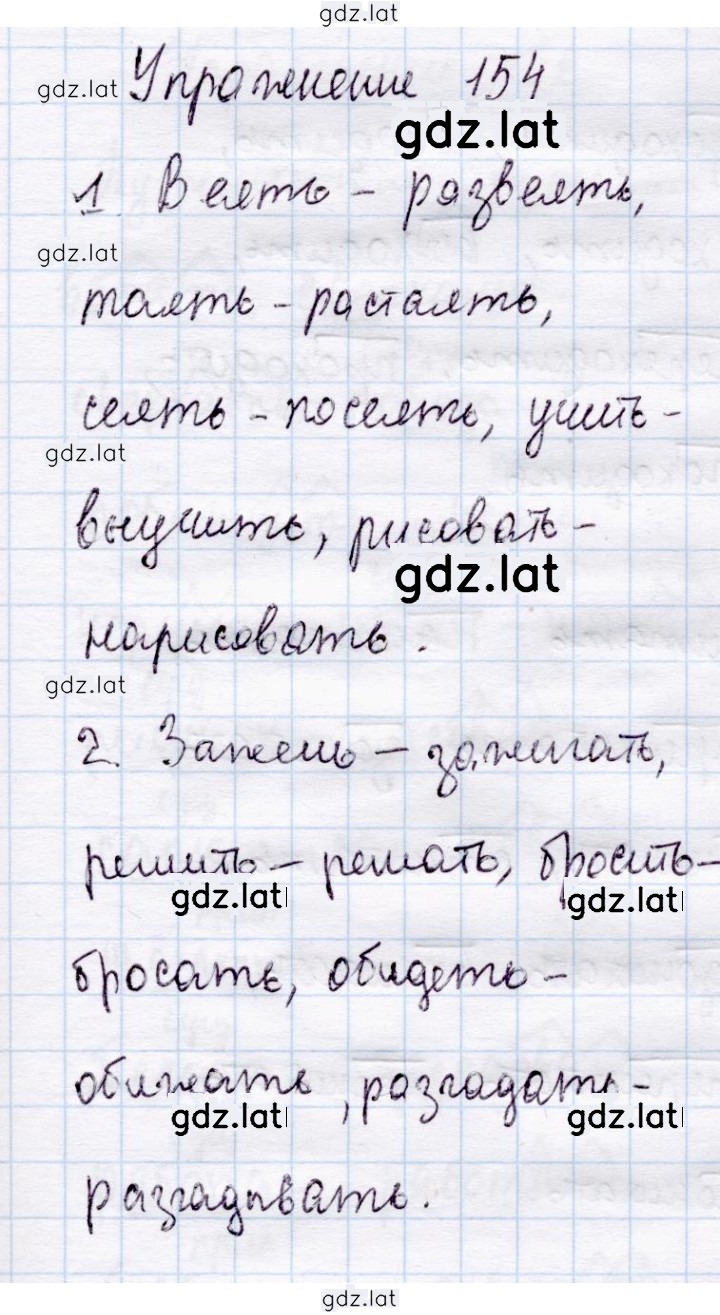 gdz.lat
Упражнение 154
gdz.lat
gdz.lat
1. Веять - развеять,
gdz.lat
таять - растаять,
сеять - посеять, учить -
gdz.lat
выучить, рисовать -
gdz.lat
нарисовать.
gdz.lat
2. Зажечь - зажигать,
решить - решать, бросить -
gdz.lat gdz.lat
бросать, обидеть -
обижать, разгадать -
gdz.lat gdz.lat
разгадывать.
gdz.lat